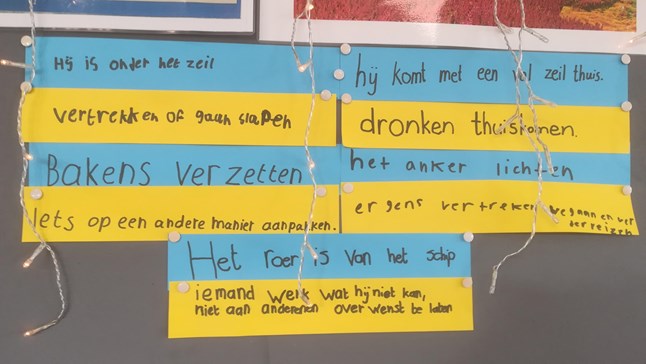 Hij is onder het zeil
vertrekken of gaan slapen
Bakens verzetten
Iets op een andere manier aanpakken.
hij komt met een vol zeil thuis.
dronken thuiskomen.
het anker lichten
ergens vertreken wegaan en ver
der reizen
Het roer is van het schip
iemand werk wat hij niet kan,
niet aan anderen over wenst te laten